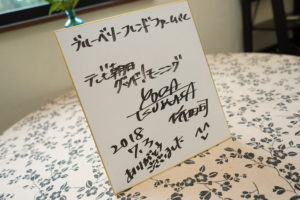 ブルーベリーフレンドファームさんへ
テレビ朝日
グッド!モーニング
YODA
TSUKASA
依田司
2018
7.3
ありがとう
ございました